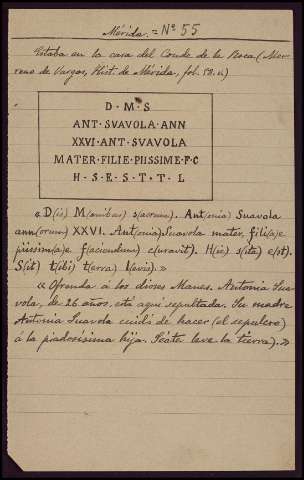 Mérida. = Nº 55
Estaba en la casa del Conde de la Roca (Mo-
reno de Vargas, Hist. de Mérida, fol.
D · M · S
ANT · SVAVOLA · ANN
XXVI · ANT · SVAVOLA
MATER · FILIE · PIISSIME · F · C
H · S · E · S · T · T · L
« D(is) M(anibus) s(acrum). Ant(onia) Suavola
ann(orum) XXVI. Ant(onia) Suavola mater, fili(a)e
piissim(a)e f(aciendum) c(uravit). H(ic) s(ita) e(st).
S(it) t(ibi) t(erra) l(evis). »
« Ofrenda á los dioses Manes. Antonia Sua-
vola, de 26 años, está aqui sepultada. Su madre
Antonia Suavola cuidó de hacer (el sepulcro)
á la piadosísima hija. Séate leve la tierra). »